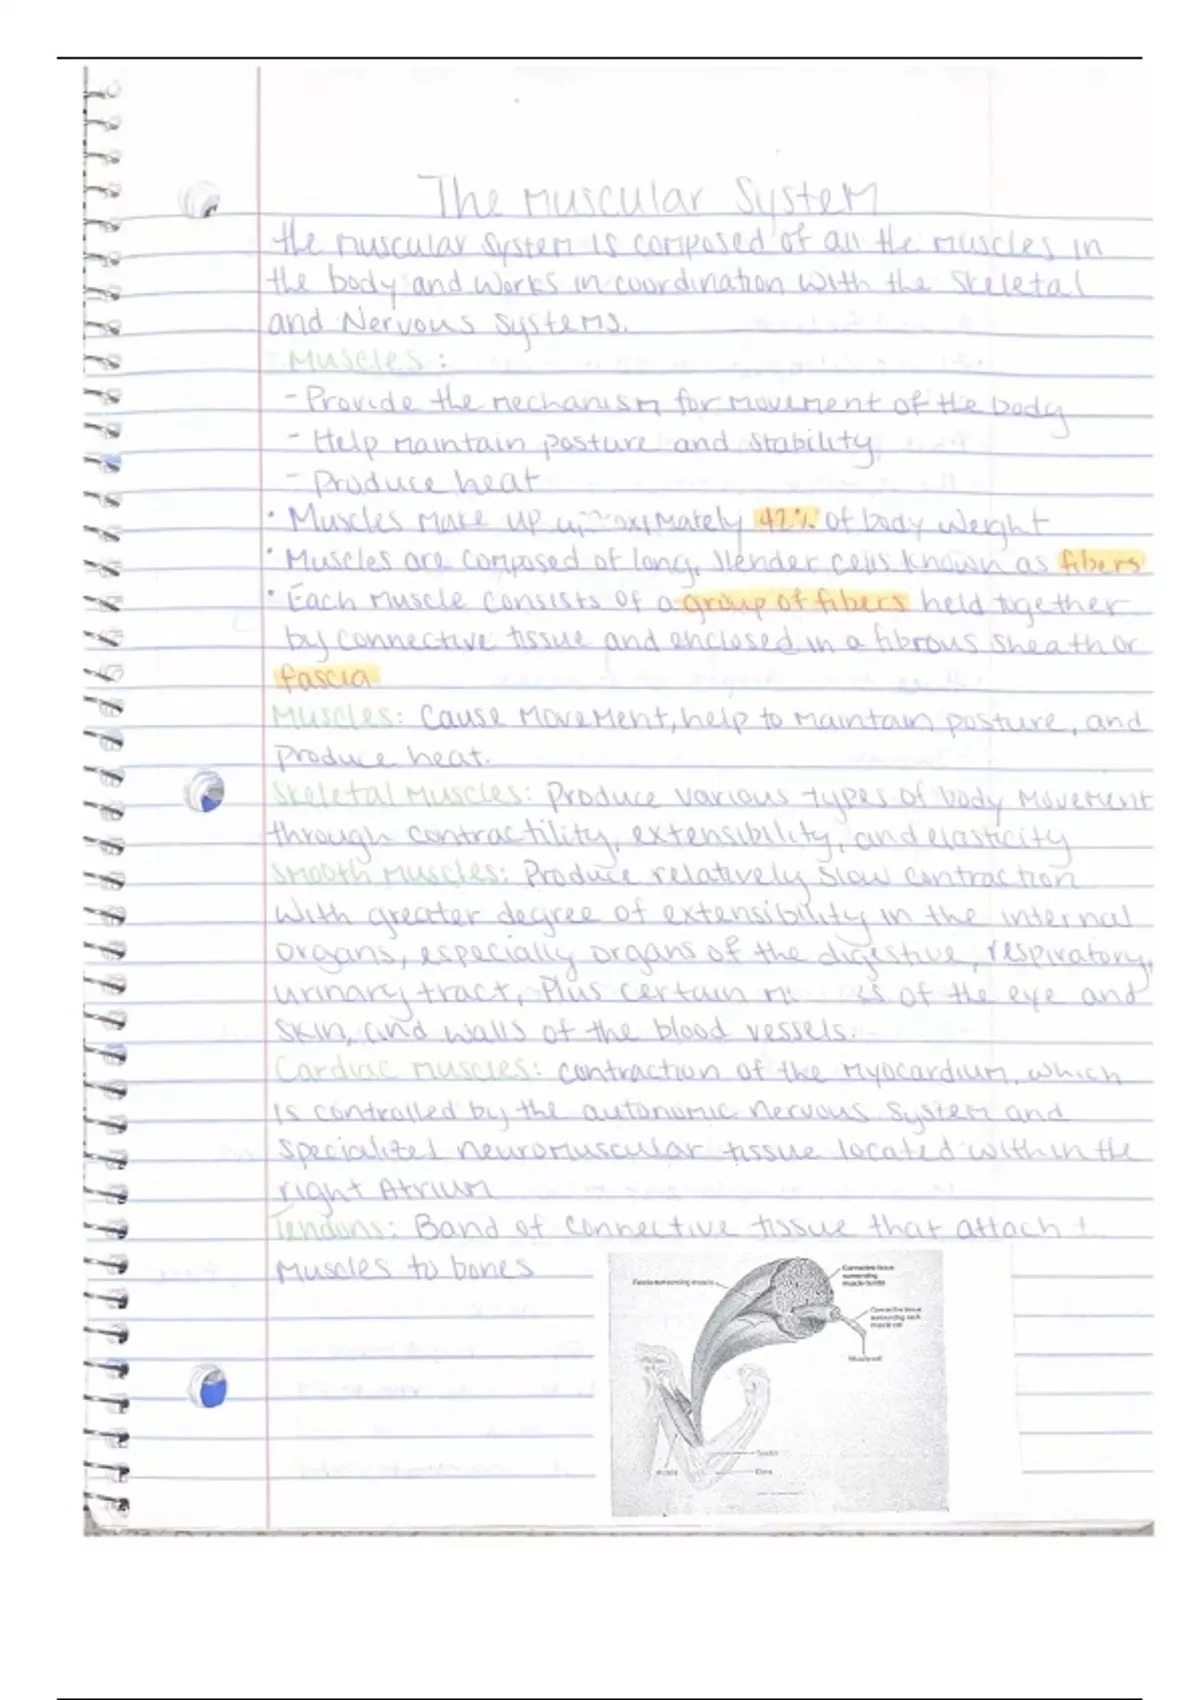 The Muscular System
the muscular system is composed of all the muscles in
the body and works in coordination with the skeletal
and Nervous systems.
Muscles:
- Provide the mechanism for movement of the body
- Help maintain posture and stability
- Produce heat
• Muscles make up approximately 42% of body weight
• Muscles are composed of long, slender cells known as fibers
• Each muscle consists of a group of fibers held together
by connective tissue and enclosed in a fibrous sheath or
fascia
Muscles: Cause movement, help to maintain posture, and
produce heat.
Skeletal Muscles: Produce various types of body movement
through contractility, extensibility, and elasticity
Smooth Muscles: Produce relatively slow contraction
with greater degree of extensibility in the internal
organs, especially organs of the digestive, respiratory,
urinary tract, Plus certain of the eye and
skin, and walls of the blood vessels.
Cardiac Muscles: contraction of the Myocardium, which
is controlled by the autonomic nervous system and
specialized neuromuscular tissue located within the
right Atrium
Tendons: Band of connective tissue that attach
Muscles to bones
Fascia surrounding muscle
Connective tissue
surrounding
muscle bundle
Connective tissue
surrounding each
muscle cell
Muscle cell
Tendon
Muscle
Bone